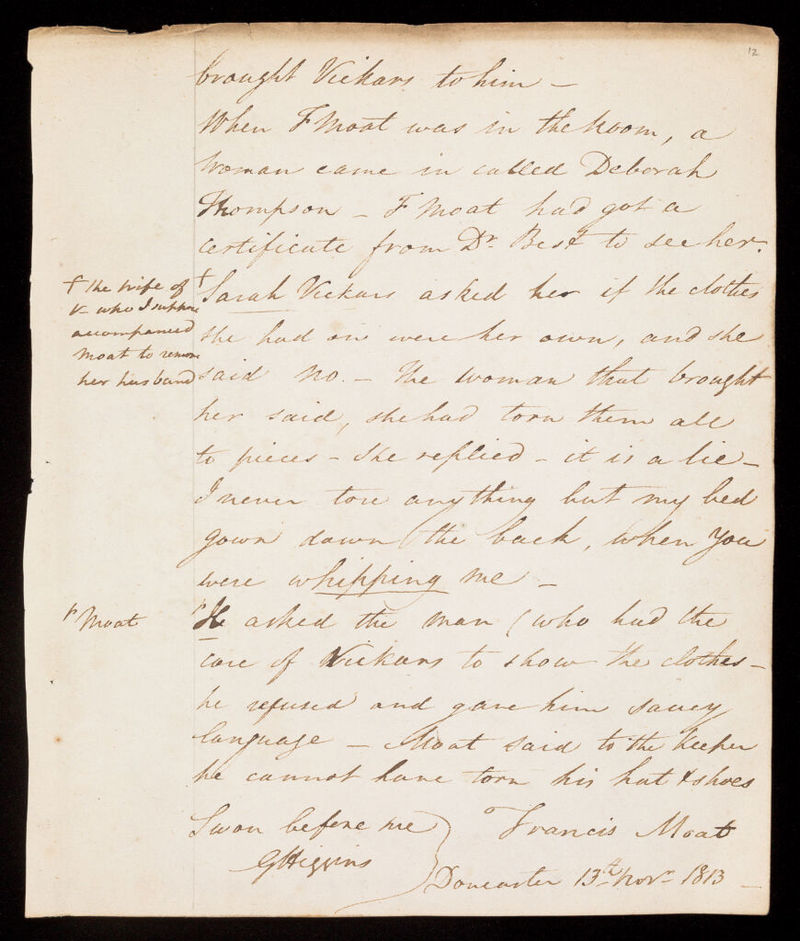 12
brought Vickars to him —
When F Moat was in the Room, a
Woman came in called Deborah
Thompson — F Moat had got a
certificate from Dr. Best to see her.
† the wife of
V– who I suppose
accompanied
Moat to remove
her husband
† Sarah Vickars asked her if the clothes
she had on were her own, and she
said No. — The woman that brought
her said, she had torn them all
to pieces — She replied — it is a lie —
I never tore anything but my bed
gown down the back, when you
were whipping me —
Moat
He asked the man (who had the
care of Vickars to show the clothes —
he refused and gave him saucy
language — Moat said to the Keeper
he cannot have torn his hat & shoes
Sworn before me
GHiggins
Francis Moat
Doncaster 13th Novr 1813 —